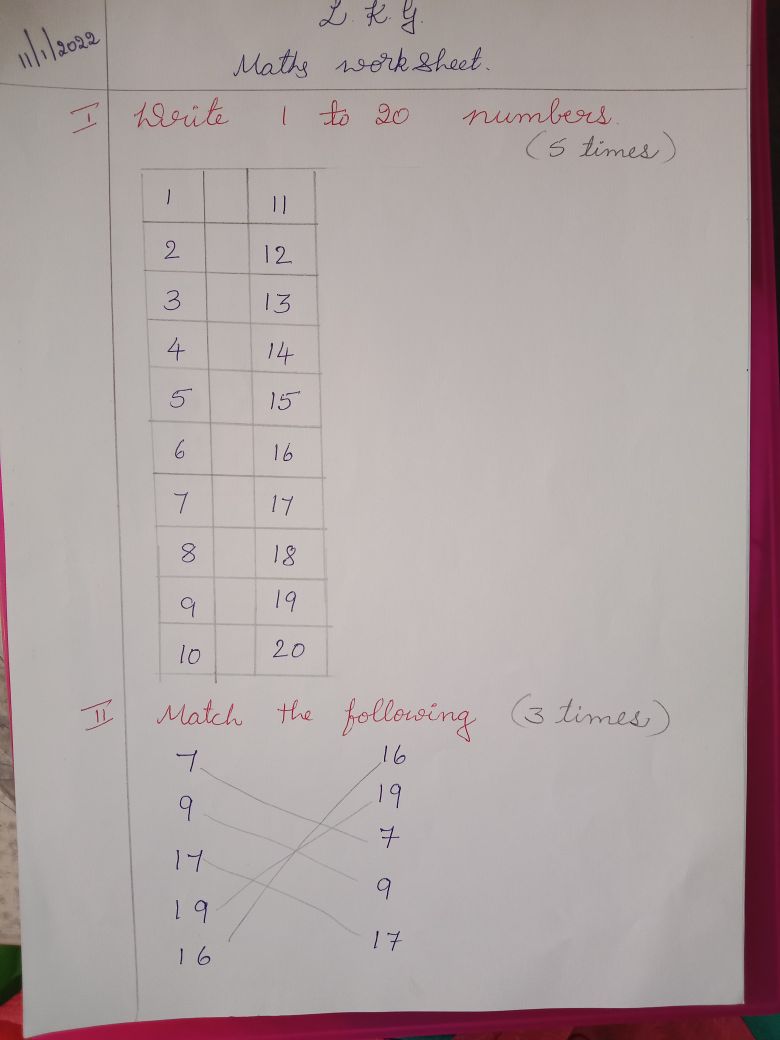 L. K. G.
11/1/2022
Maths worksheet.
I Write 1 to 20 numbers.
(5 times)
1 11
2 12
3 13
4 14
5 15
6 16
7 17
8 18
9 19
10 20
II Match the following (3 times)
7 16
9 19
17 7
19 9
16 17